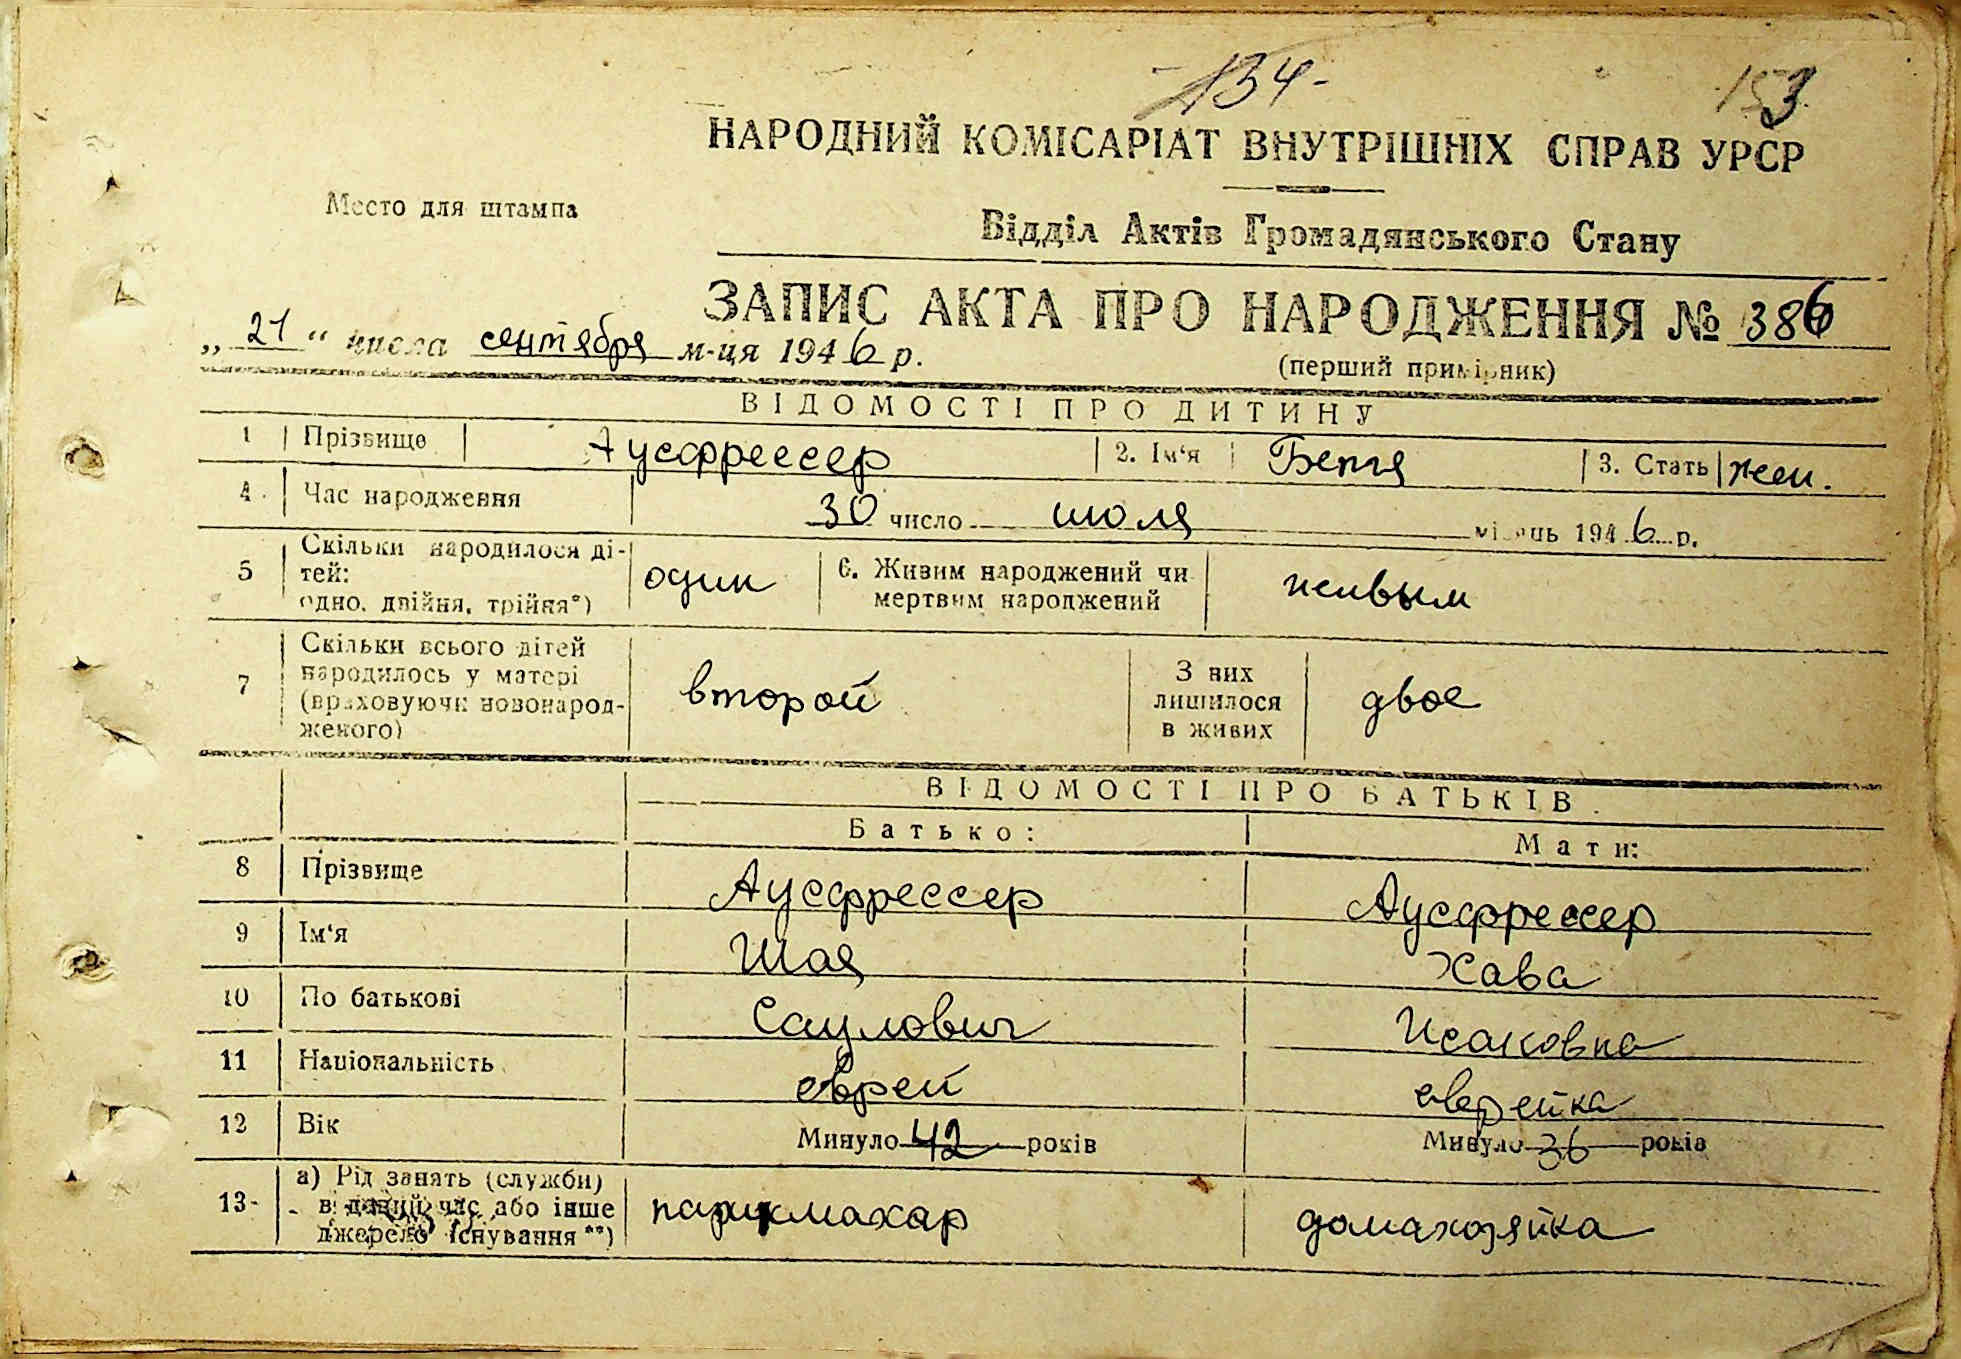 -134-
153
НАРОДНИЙ КОМІСАРІАТ ВНУТРІШНІХ СПРАВ УРСР
Место для штампа
Відділ Актів Громадянського Стану
ЗАПИС АКТА ПРО НАРОДЖЕННЯ № 386
„21“ числа сентября м-ця 1946 р.
(перший примірник)
ВІДОМОСТІ ПРО ДИТИНУ
1 Прізвище Аусфрессер 2. Ім'я Бетя 3. Стать жен.
4 Час народження 30 число июля місяць 1946 р.
5 Скільки народилося ді-
тей:
одно, двійня, трійня*) один 6. Живим народжений чи
мертвим народжений живым
7 Скільки всього дітей
народилось у матері
(враховуючи новонарод-
женого) второй З них
лишилося
в живих двое
ВІДОМОСТІ ПРО БАТЬКІВ
Батько: Мати:
8 Прізвище Аусфрессер Аусфрессер
9 Ім'я Шая Хава
10 По батькові Саулович Исаковна
11 Національність еврей еврейка
12 Вік Минуло 42 років Минуло 36 років
13 а) Рід занять (служби)
в даний час або інше
джерело існування **) парикмахар домахозяйка